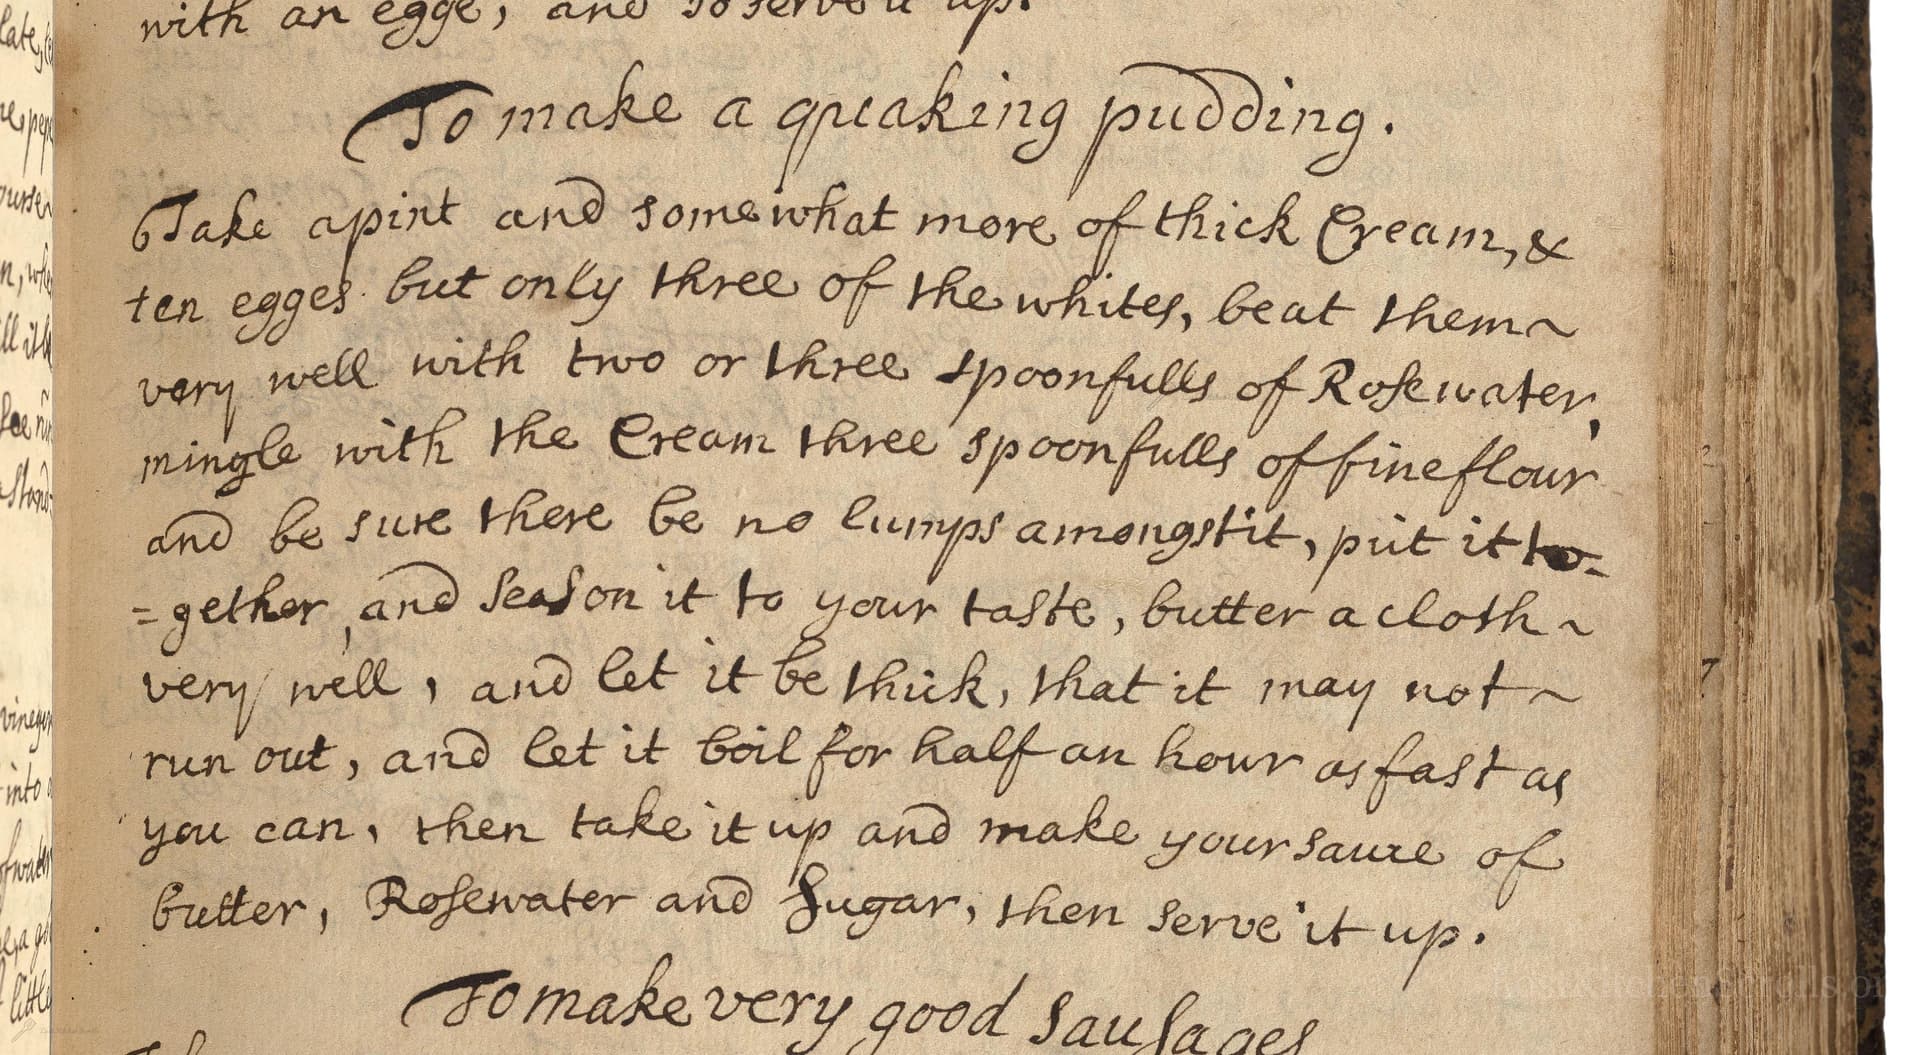 with an egge, and so serve it up.
To make a quaking pudding.
Take a pint and somewhat more of thick Cream, &
ten egges but only three of the whites, beat them~
very well with two or three spoonfulls of Rosewater,
mingle with the Cream three spoonfulls of fine flour
and be sure there be no lumps amongst it, put it to-
=gether, and season it to your taste, butter a cloth~
very well, and let it be thick, that it may not~
run out, and let it boil for half an hour as fast as
you can, then take it up and make your sauce of
butter, Rosewater and Sugar, then serve it up.
To make very good Sausages